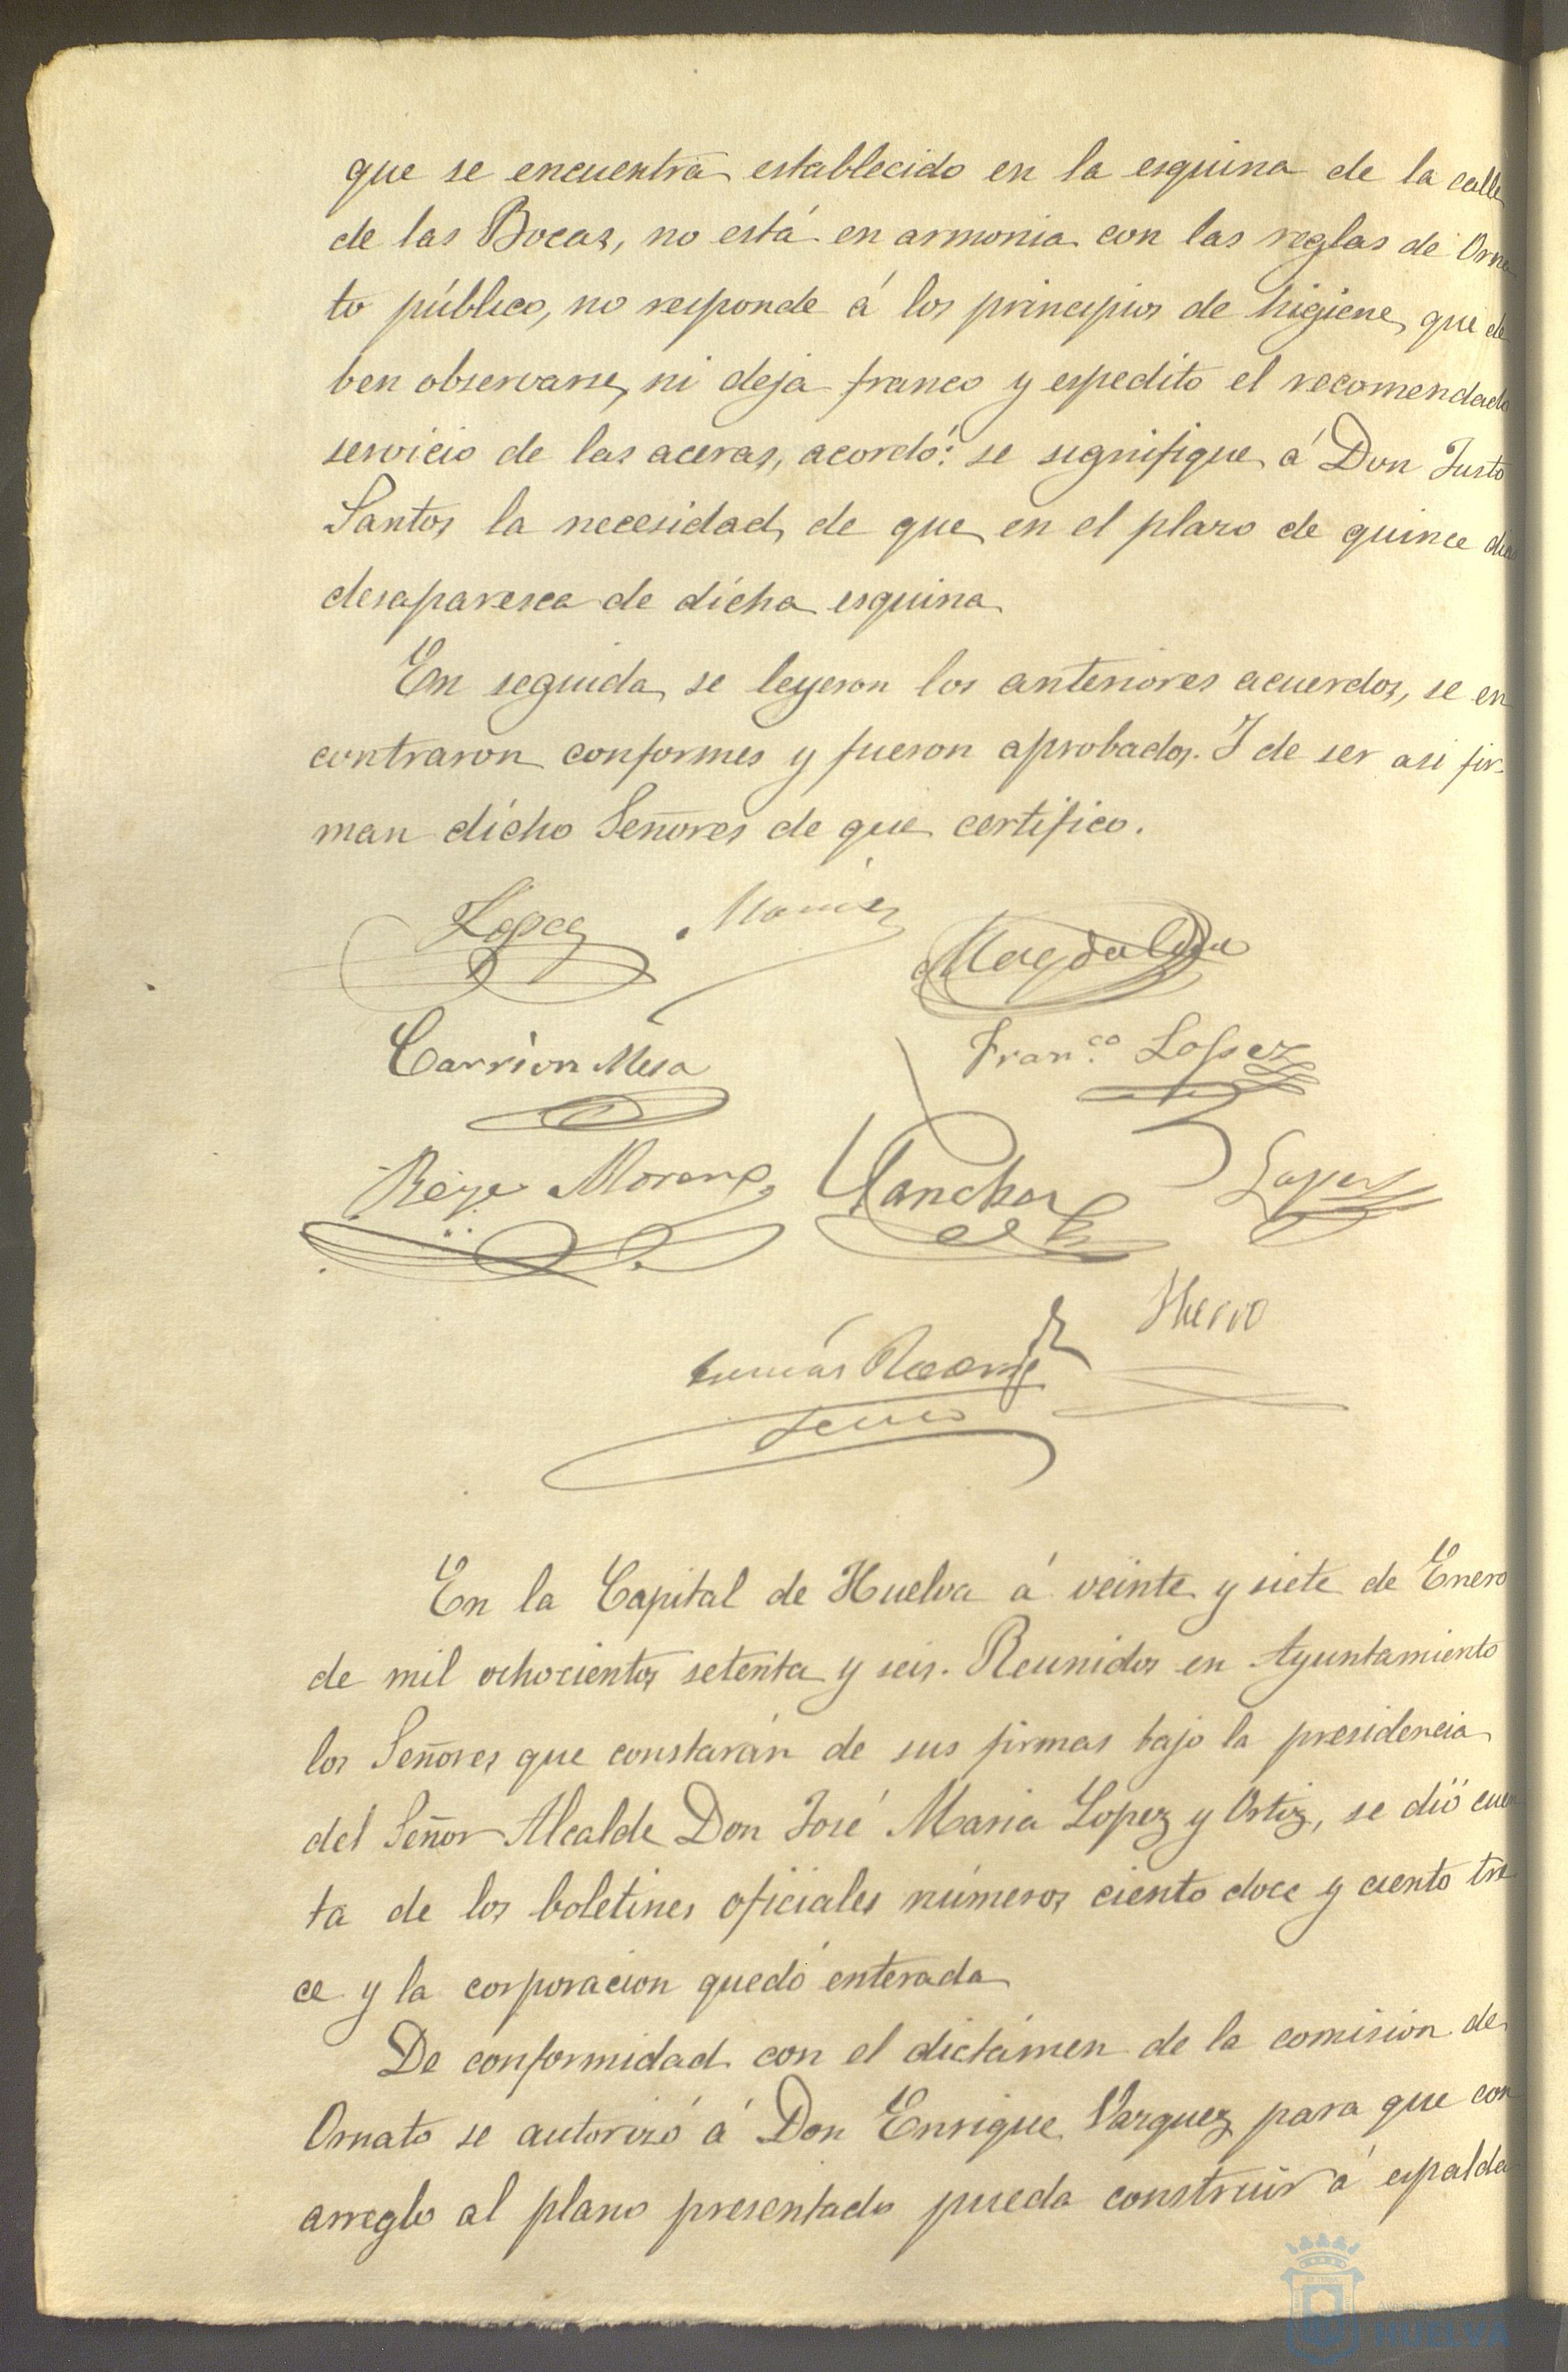 que se encuentra establecido en la esquina de la calle
de las Bocas, no está en armonia con las reglas de Orna
to público, no responde á los principios de higiene que de
ben observarse, ni deja franco y espedito el recomendado
servicio de las aceras, acordó: se signifique á Don Justo
Santos la necesidad de que en el plazo de quince dias
desaparesca de dicha esquina
En seguida se leyeron los anteriores acuerdos, se en
contraron conformes y fueron aprobados. I de ser asi fir-
man dicho Señores de que certifico.
Lopez
Magdalena
Carrion Mesa Fran.co Lopez
Moreno Sanchez Lopez
Tomás
En la Capital de Huelva á veinte y siete de Enero
de mil ochocientos setenta y seis. Reunidos en Ayuntamiento
los Señores que constarán de sus firmas bajo la presidencia
del Señor Alcalde Don José Maria Lopez y Ortiz, se dió cuen
ta de los boletines oficiales números ciento doce y ciento tre
ce y la corporacion quedó enterada
De conformidad con el dictámen de la comision de
Ornato se autorizó á Don Enrique Vazquez para que con
arreglo al plano presentado pueda construir á espalda
HUELVA